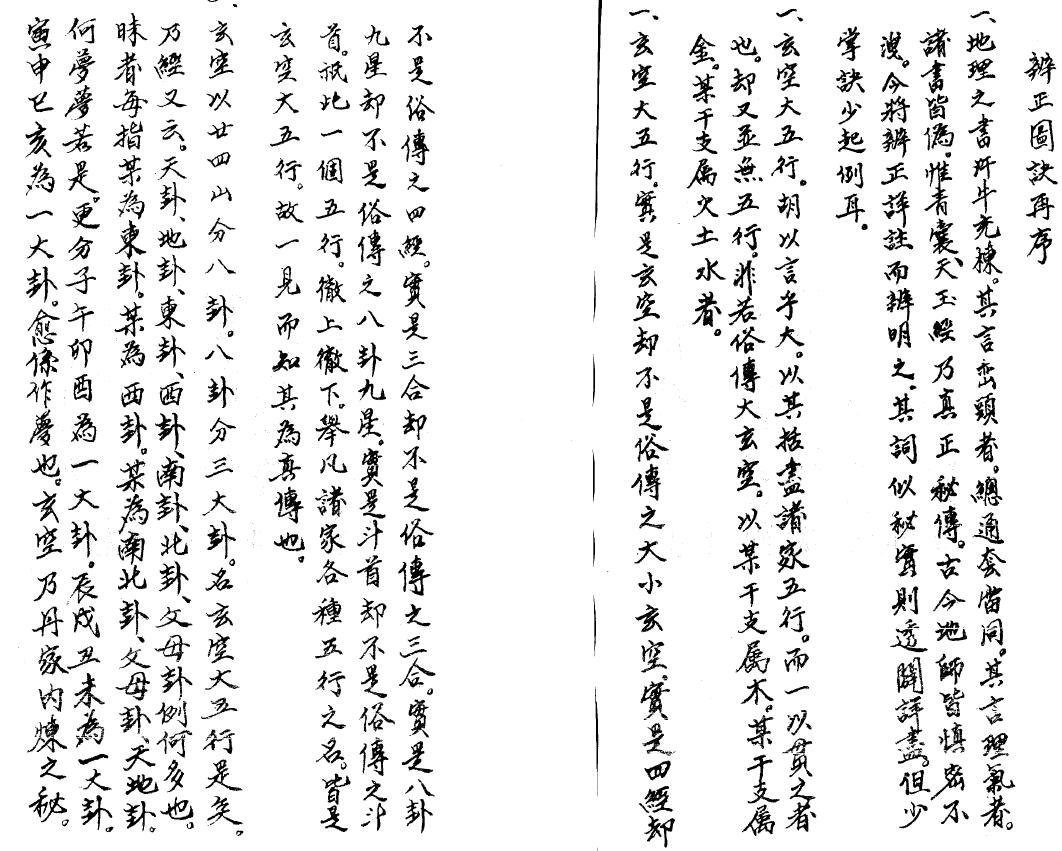 辨正圖訣再序
一、地理之書汗牛充棟。其言巒頭者。總通套雷同。其言理氣者。
諸書皆偽。惟青囊、天玉經乃真正秘傳。古今地師皆慎密不
洩。今將辨正詳註而辨明之。其詞似秘實則透闢詳盡。但少
掌訣少起例耳。
一、玄空大五行。胡以言乎大。以其括盡諸家五行。而一以貫之者
也。却又並無五行。非若俗傳大玄空。以某干支属木。某干支属
金。某干支属火土水者。
一、玄空大五行。實是玄空却不是俗傳之大小玄空。實是四經却
不是俗傳之四經。實是三合却不是俗傳之三合。實是八卦
九星却不是俗傳之八卦九星。實是斗首却不是俗傳之斗
首。祇此一個五行。徹上徹下。舉凡諸家各種五行之名。皆是
玄空大五行。故一見而知其為真傳也。
玄空以廿四山分八卦。八卦分三大卦。名玄空大五行是矣。
乃經又云。天卦、地卦、東卦、西卦、南卦、北卦、父母卦、例何多也。
昧者每指某為東卦。某為西卦。某為南北卦、父母卦、天地卦。
何夢夢若是。更分子午卯酉為一大卦。辰戌丑未為一大卦。
寅申巳亥為一大卦。愈係作夢也。玄空乃丹家內煉之秘。